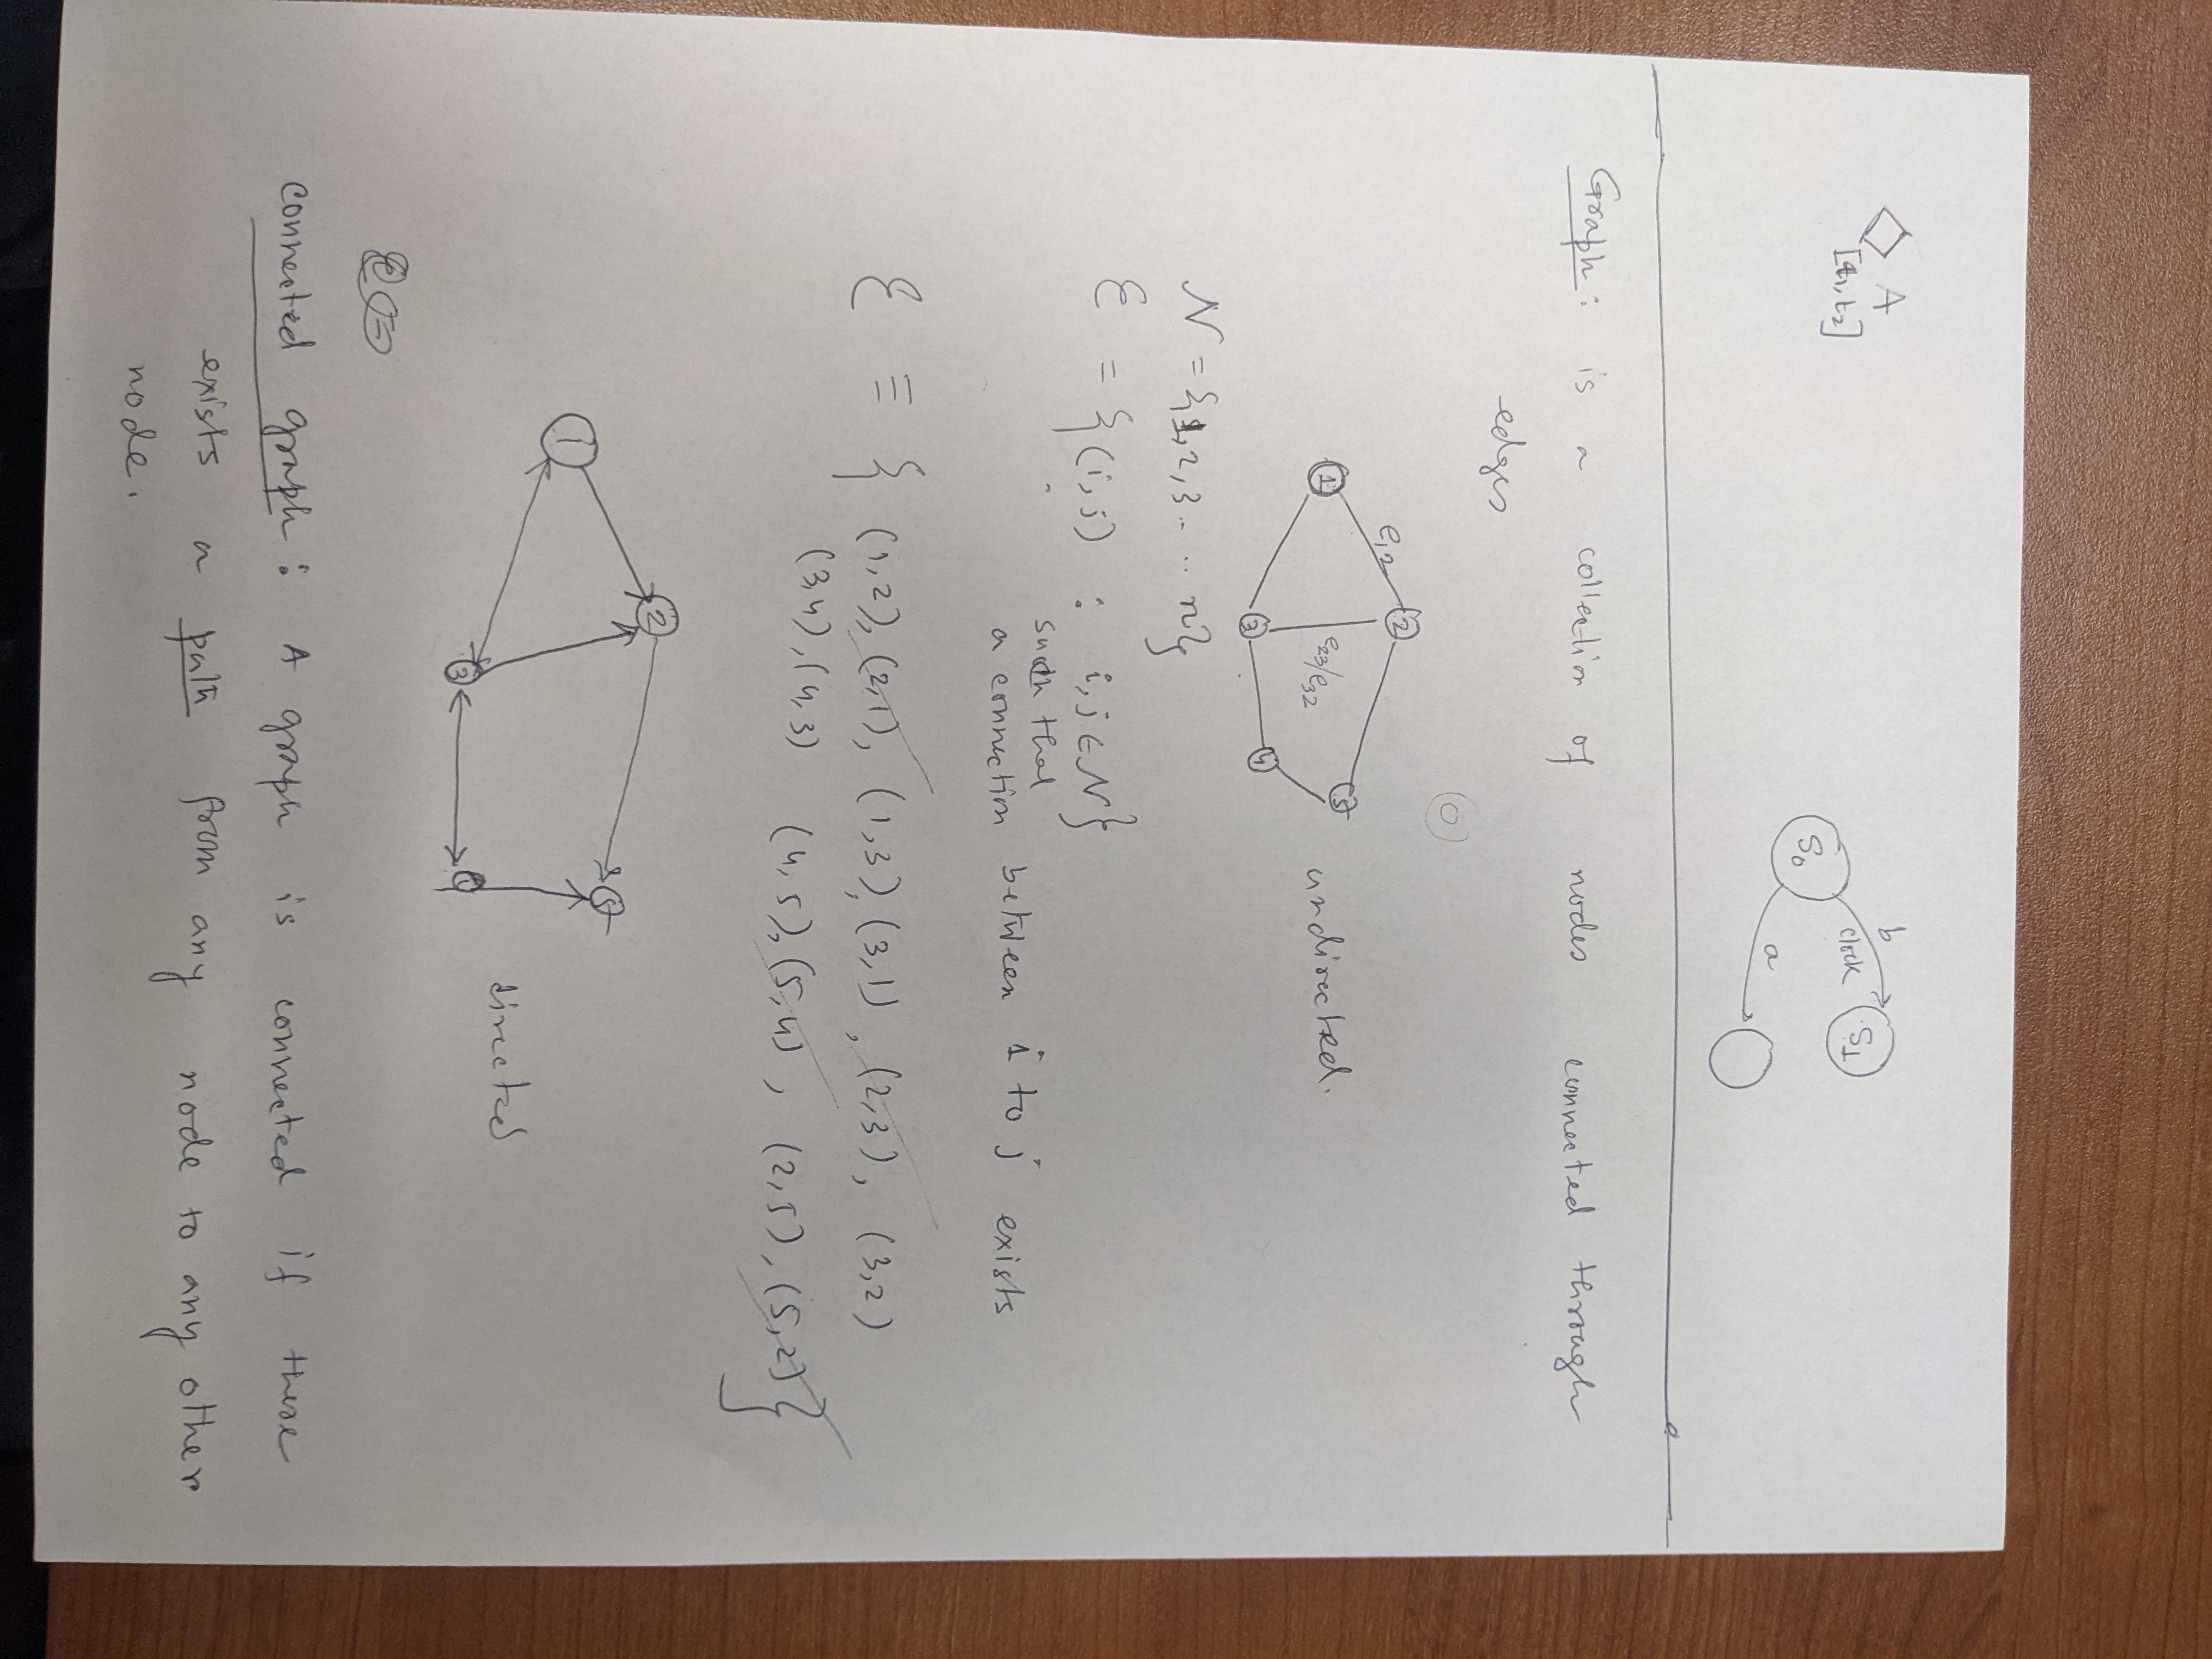 ◇ A
[t1, t2]
S0
b
clock
S1
a
Graph : is a collection of nodes connected through
edges
0
1
e12
2
e23/e32
3
4
5
undirected.
N = {1, 2, 3 .... n}
E = {(i, j) : i, j ∈ N}
such that
a connection between i to j exists
E ≡ { (1,2), (2,1), (1,3), (3,1), (2,3), (3,2)
(3,4), (4,3) (4,5), (5,4), (2,5), (5,2) }
1
2
3
5
directed
connected graph : A graph is connected if there
exists a path from any node to any other
node.